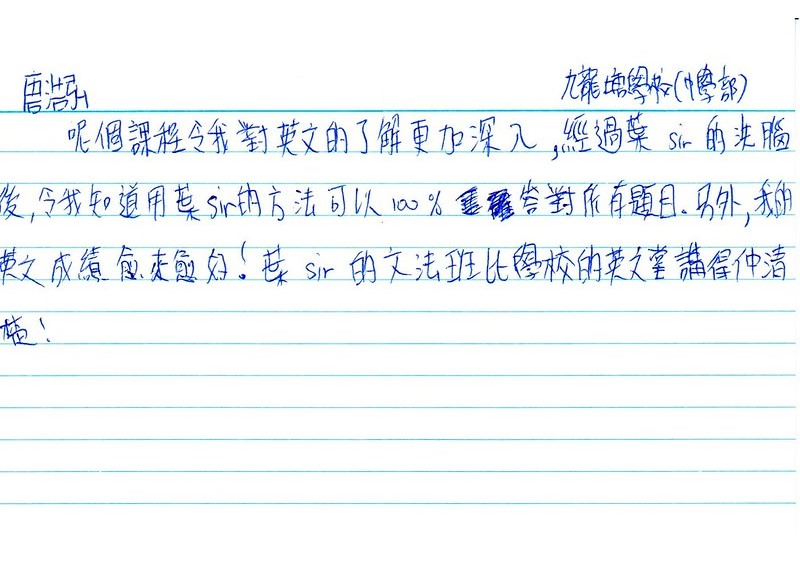 唐浩弘
九龍塘學校(中學部)
呢個課程令我對英文的了解更加深入,經過葉 sir 的洗腦
後,令我知道用葉sir的方法可以100% 答對所有題目.另外,我的
英文成績愈來愈好!葉 sir 的文法班比學校的英文堂講得仲清
楚!